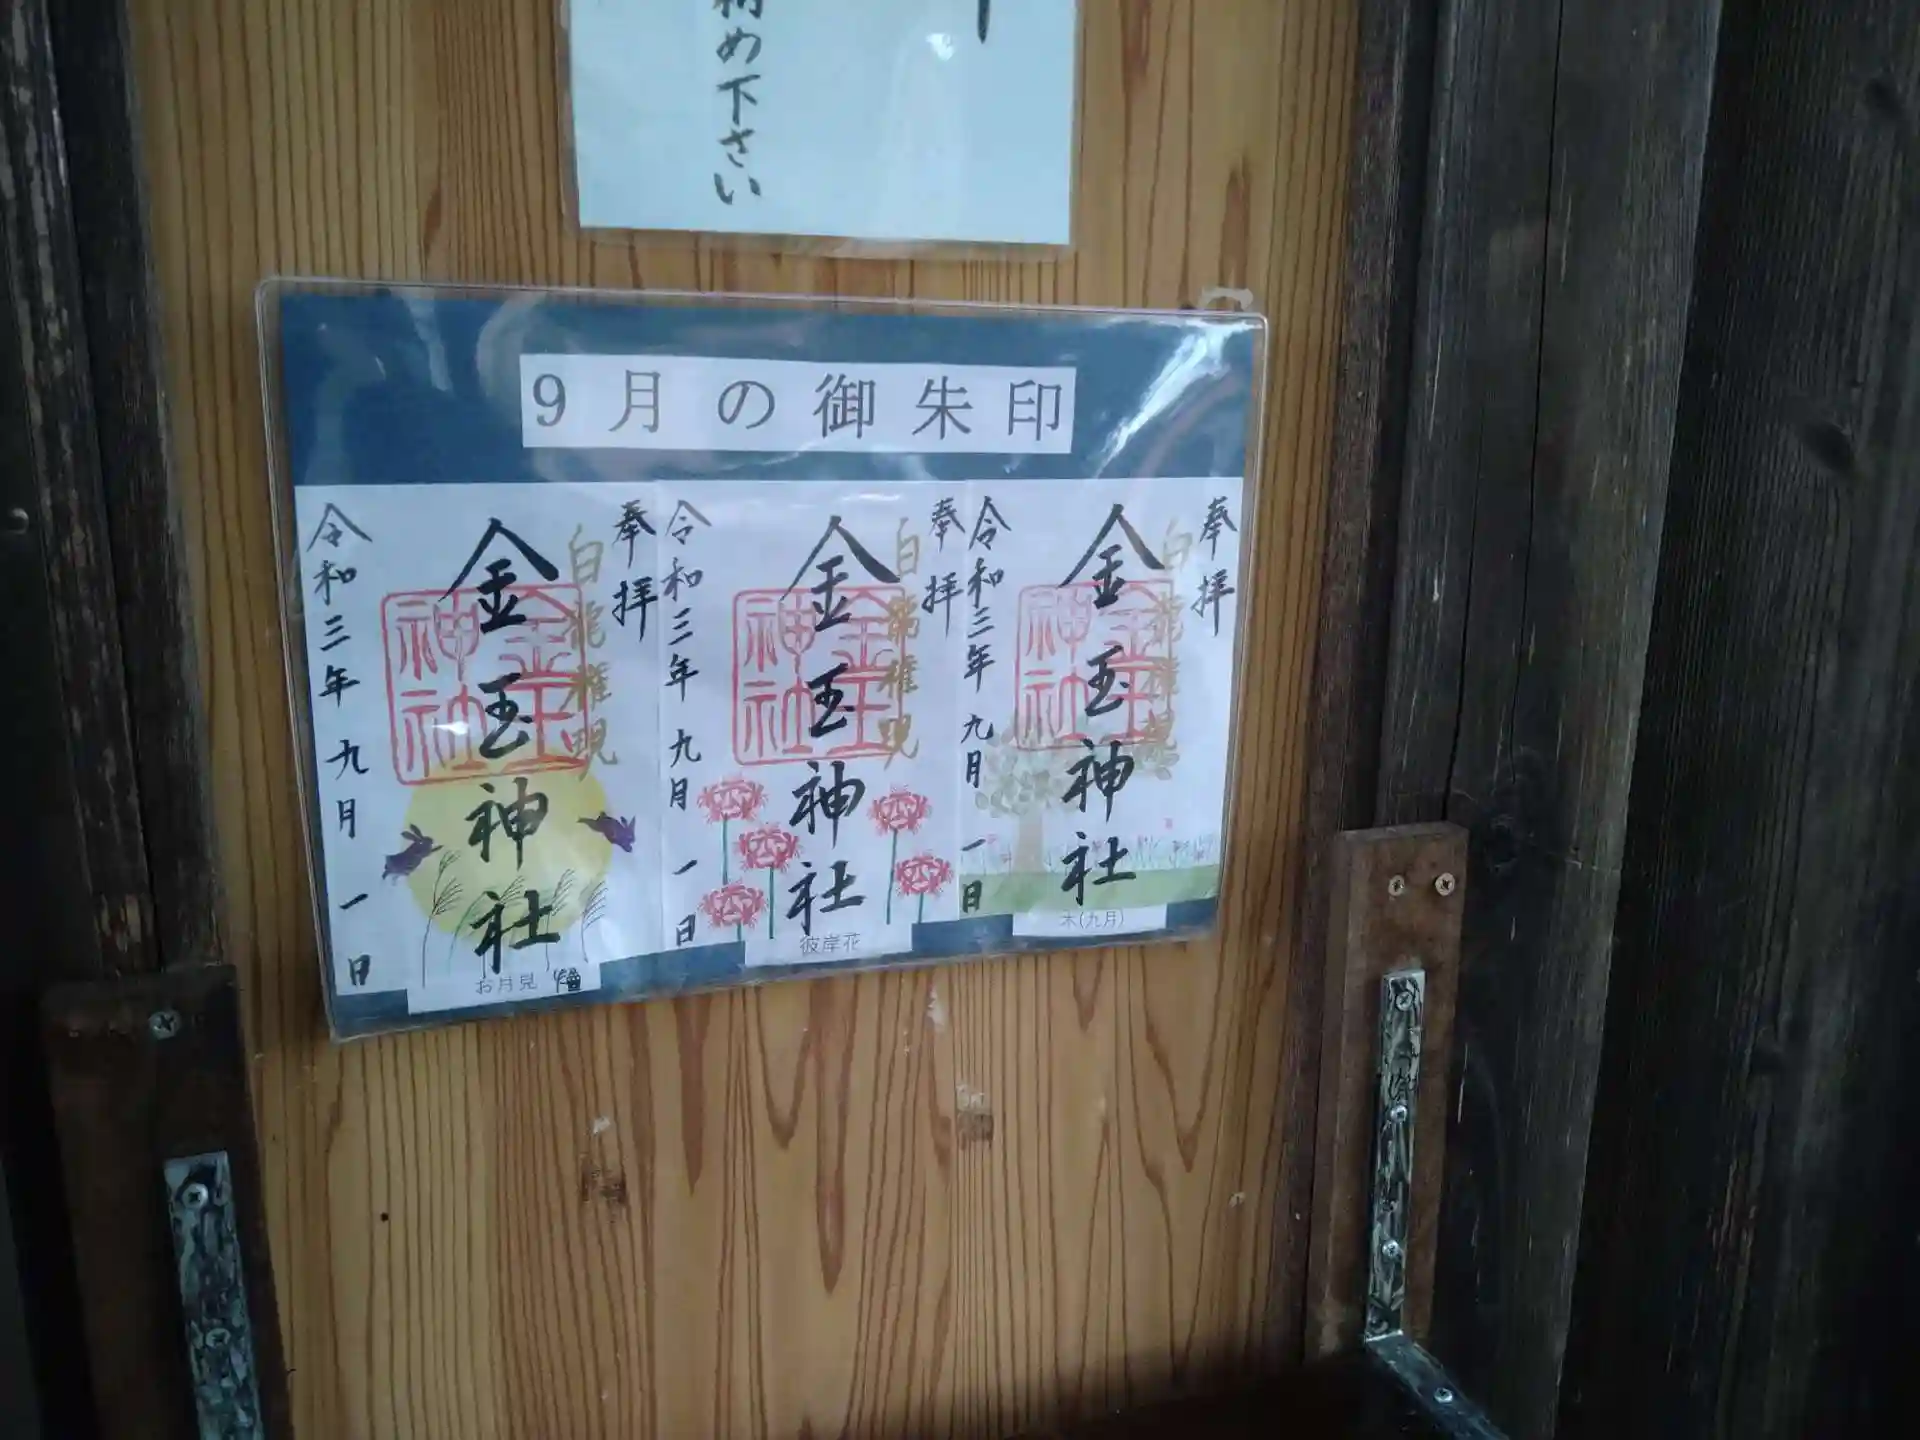 め下さい
9月の御朱印
奉拝
白龍権現
金玉神社
金玉神社
令和三年九月一日
お月見
奉拝
白龍権現
金玉神社
金玉神社
令和三年九月一日
彼岸花
奉拝
白龍権現
金玉神社
金玉神社
令和三年九月一日
木(九月)